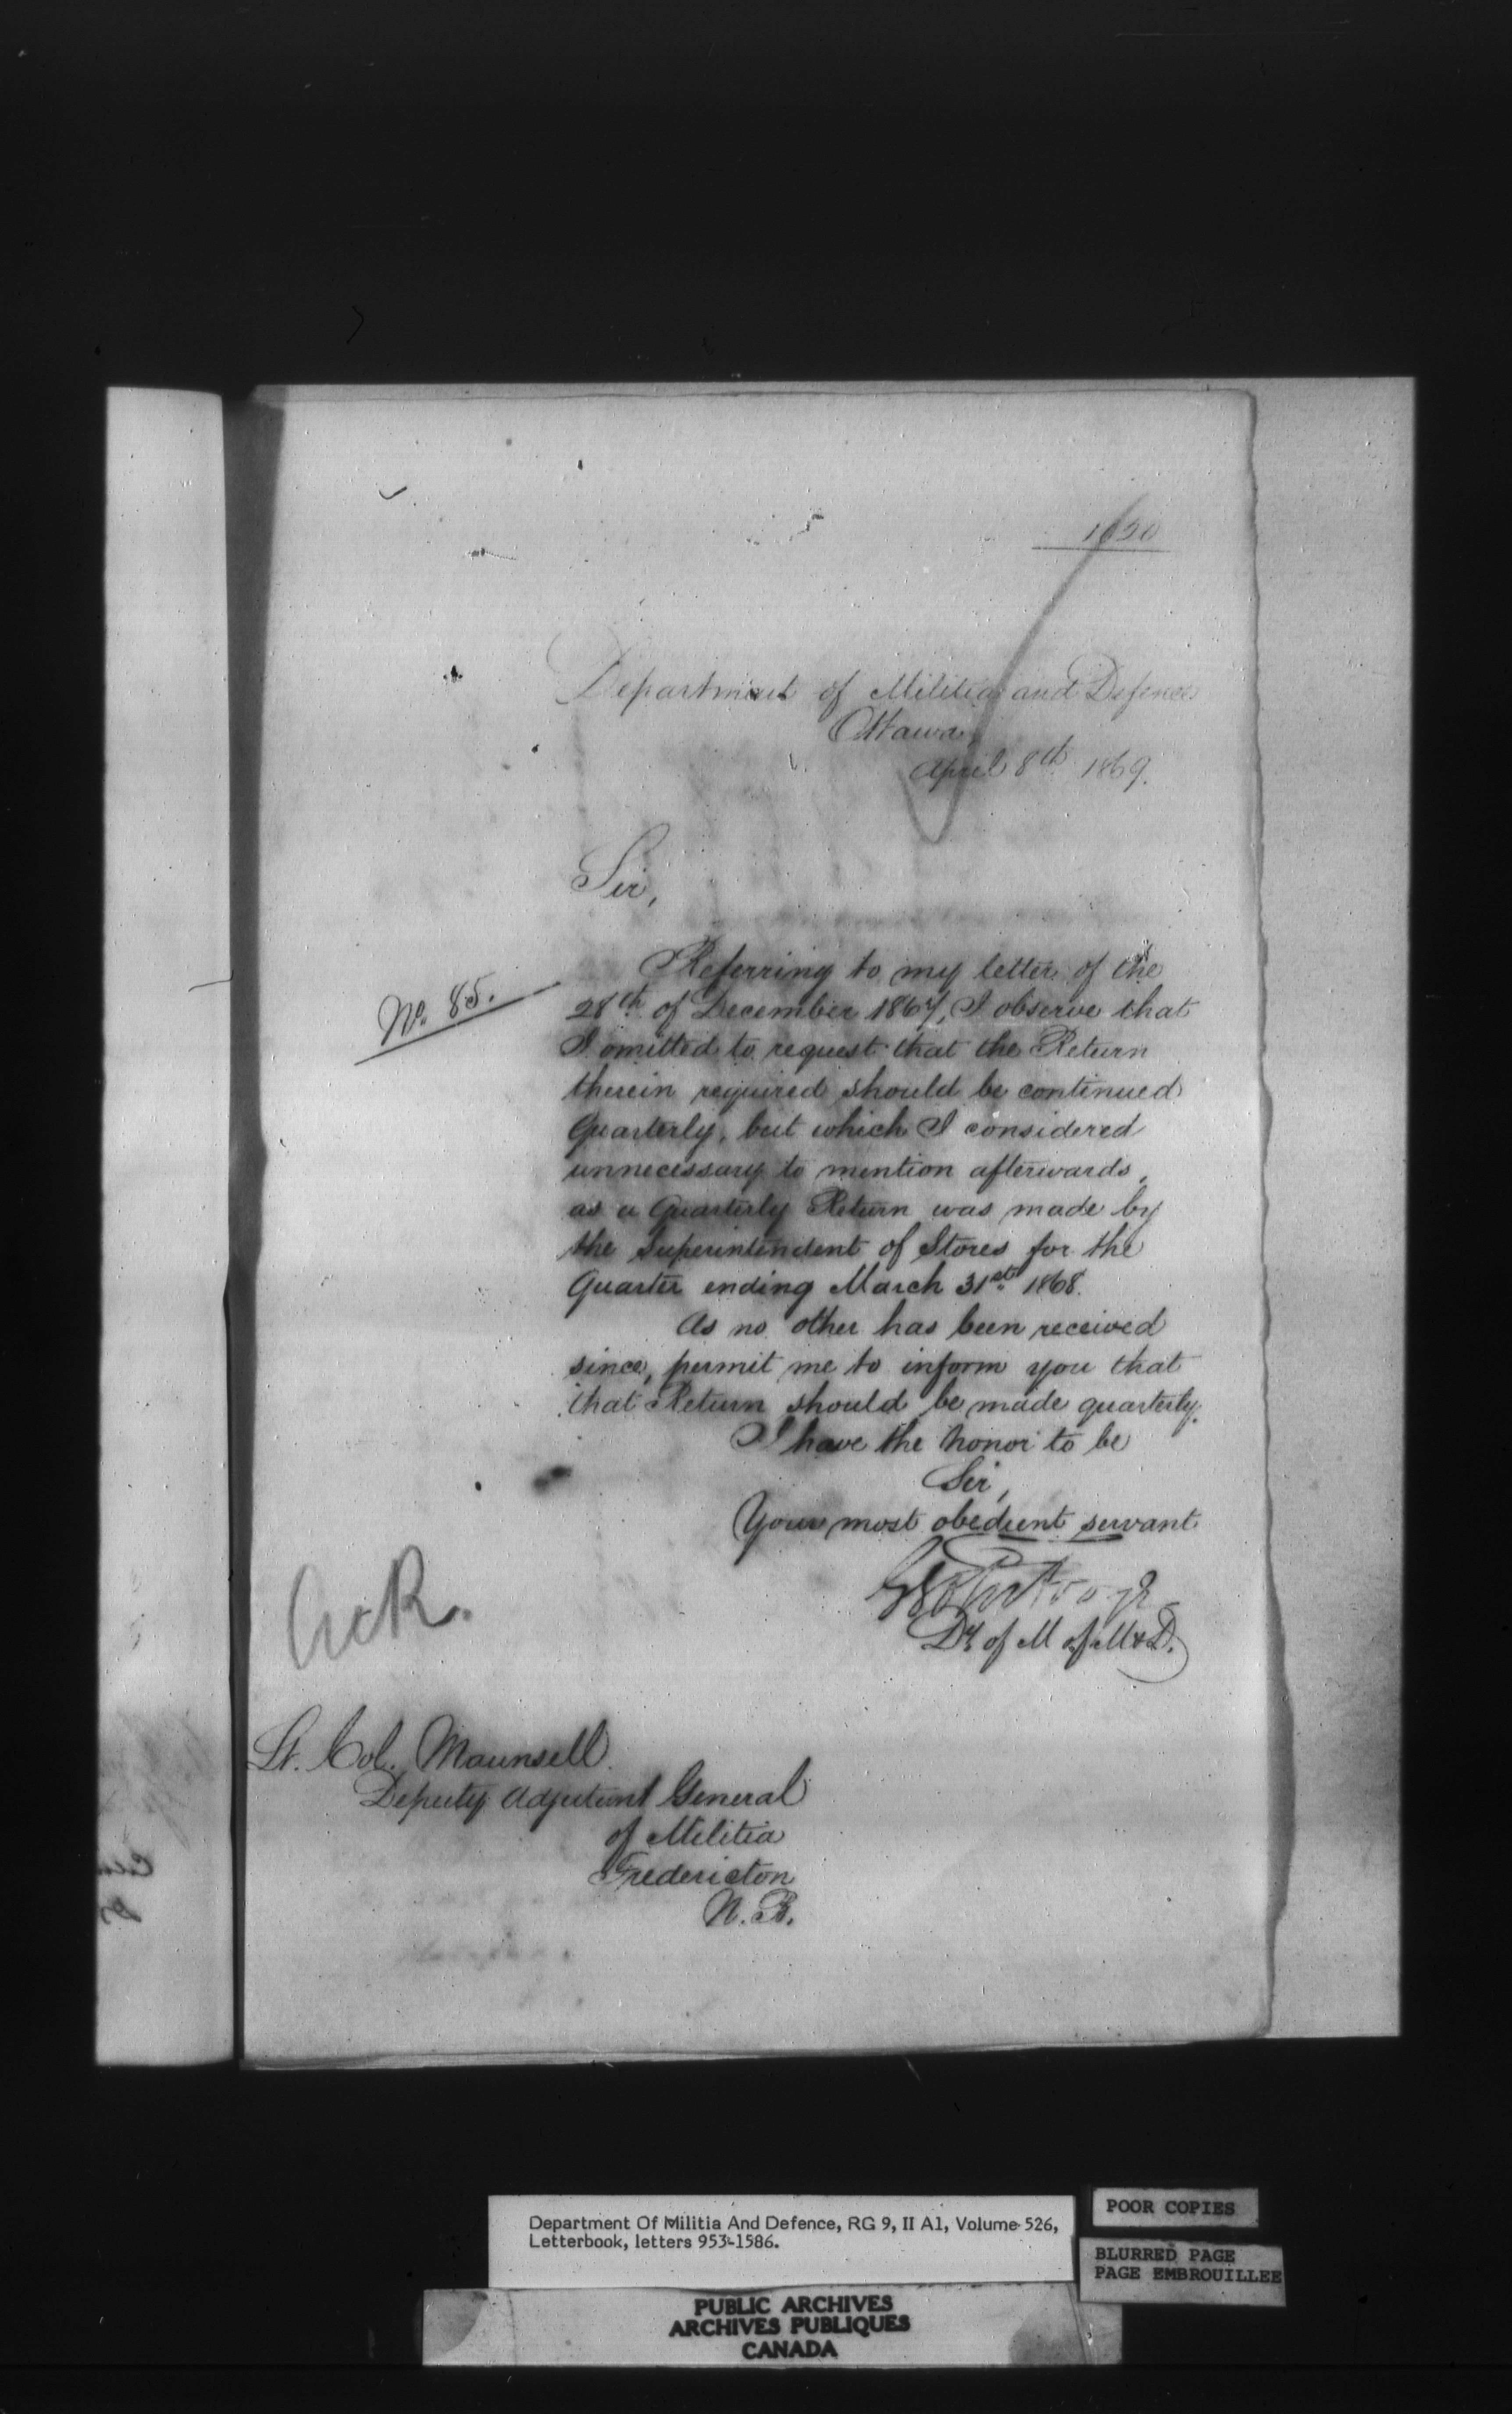 1050
Department of Militia and Defence
Ottawa,
April 8th 1869.
Sir,
Referring to my letter of the
No. 85.
28th of December 1867, I observe that
I omitted to request that the Return
therein required should be continued
Quarterly, but which I considered
unnecessary to mention afterwards,
as a Quarterly Return was made by
the Superintendent of Stores for the
Quarter ending March 31st 1868.
As no other has been received
since, permit me to inform you that
that Return should be made quarterly.
I have the honor to be
Sir,
Your most obedient servant
Dy. of M of M & D.
Lt. Col. Maunsell
Deputy Adjutant General
of Militia
Fredericton
N. B.
Department Of Militia And Defence, RG 9, II A1, Volume 526,
Letterbook, letters 953-1586.
POOR COPIES
BLURRED PAGE
PAGE EMBROUILLEE
PUBLIC ARCHIVES
ARCHIVES PUBLIQUES
CANADA